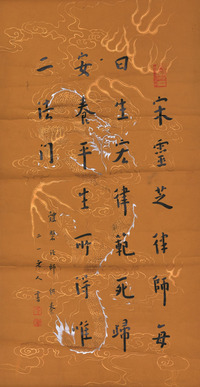 宋靈芝律師每
曰生宏律範死歸
安養平生所得唯
二法門
一老人書